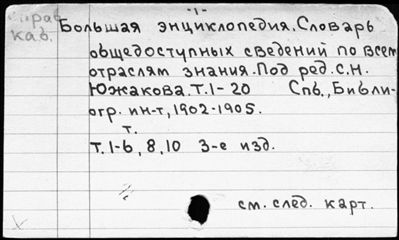 -1-
Справ. Большая энциклопедия. Словарь
каб.
общедоступных сведений по всем
отраслям знания. Под ред. С.Н.
Южакова. Т. 1-20 Спб., Библи-
огр. ин-т, 1902-1905.
т.
Т. 1-6, 8, 10 3-е изд.
см. след. карт.